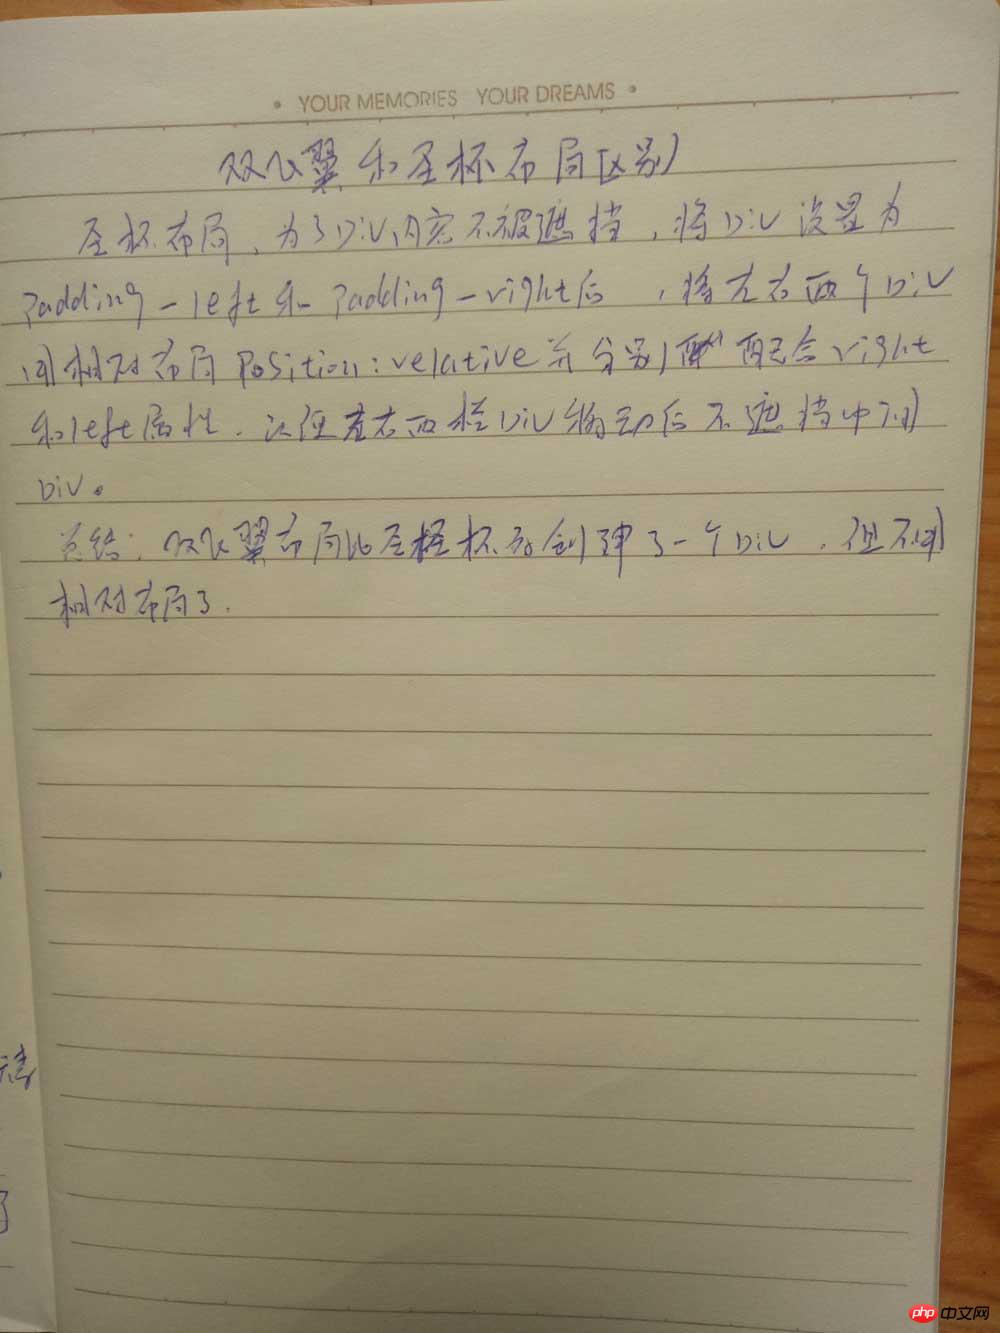 • YOUR MEMORIES YOUR DREAMS •
双飞翼和圣杯布局区别
圣杯布局,为了Div内容不被遮挡,将Div设置为
Padding-left和Padding-right后,将左右两个Div
用相对布局Position:relative并分别配合right
和left属性,以便左右两栏Div移动后不遮挡中间
Div。
总结:双飞翼布局比圣杯布局创建了一个Div,但不用
相对布局了.
php 中文网